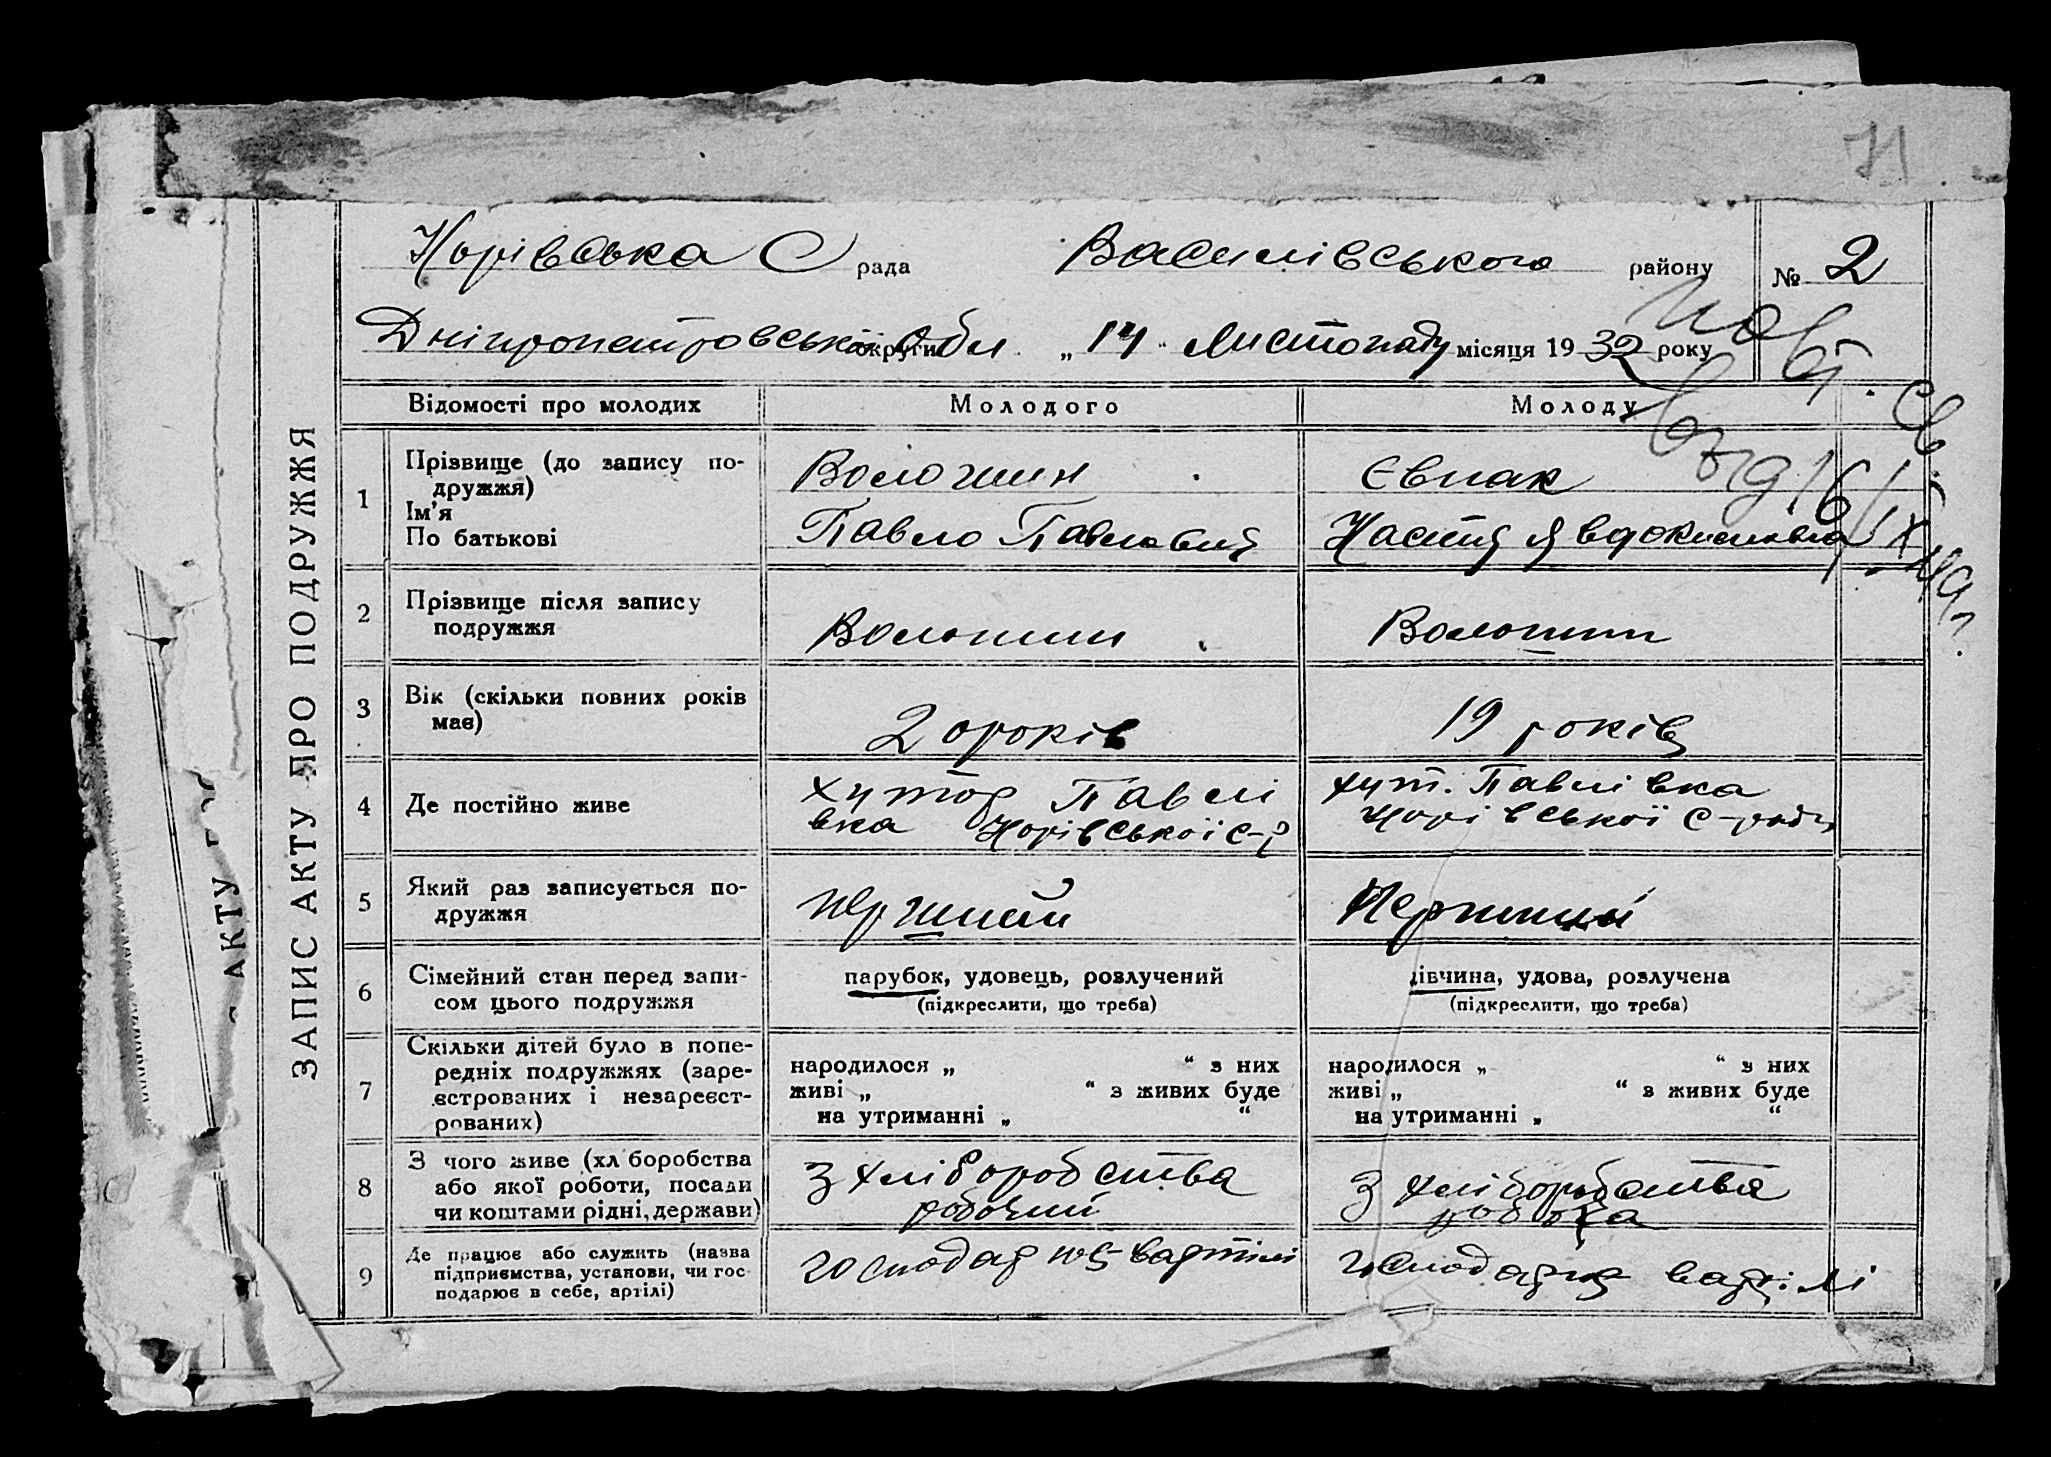 71
Норівська С рада Василівського району № 2
Дніпропетровської округи Обл. „14" Листопаду місяця 1932 року
ЗАПИС АКТУ ПРО ПОДРУЖЖЯ
АКТУ
Відомості про молодих Молодого Молоду
1 Прізвище (до запису по-
дружжя)
Ім'я
По батькові
Волошин
Павло Павлович
Євпак
Настя Явдокимовна
2 Прізвище після запису
подружжя
Волошин
Волошин
3 Вік (скільки повних років
має)
20 років
19 років
4 Де постійно живе
хутор Павлі
вка Норівської с-р
хут. Павлівка
Норівської с-ради
5 Який раз записується по-
дружжя
Перший
Перший
6 Сімейний стан перед запи-
сом цього подружжя
парубок, удовець, розлучений
(підкреслити, що треба)
дівчина, удова, розлучена
(підкреслити, що треба)
7 Скільки дітей було в попе-
редніх подружжях (заре-
єстрованих і незареєст-
рованих)
народилося „ " з них
живі „ " з живих буде
на утриманні „ "
народилося „ " з них
живі „ " з живих буде
на утриманні „ "
8 З чого живе (хліборобства
або якої роботи, посади
чи коштами рідні, держави)
З хліборобства
робочий
З хліборобства
9 Де працює або служить (назва
підприємства, установи, чи гос-
подарює в себе, артілі)
вартілі